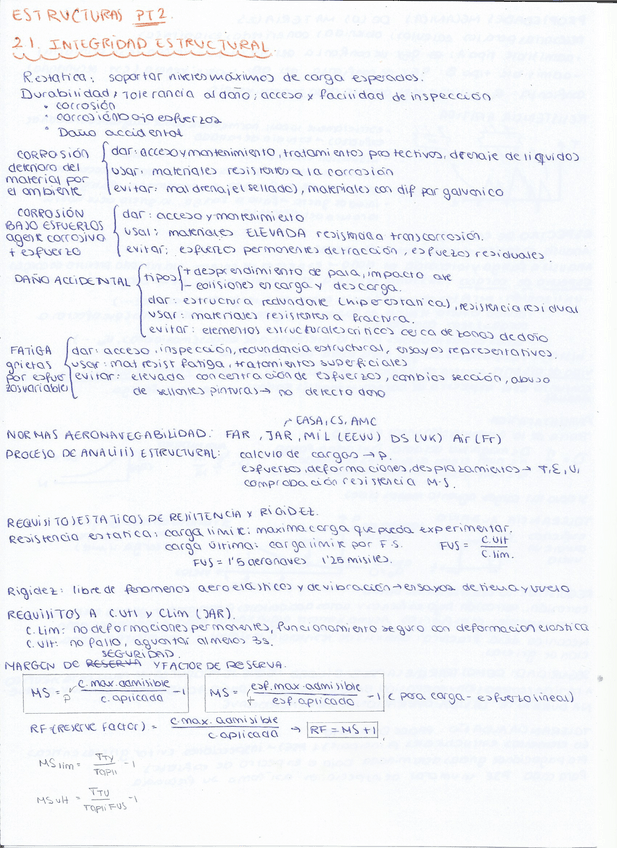 ESTRUCTURAS PT2.
21. INTEGRIDAD ESTRUCTURAL
Restática: soportar niveles máximos de carga esperados.
Durabilidad, tolerancia al daño; acceso y facilidad de inspección
• corrosión
• corrosión bajo esfuerzos
• Daño accidental
CORROSIÓN deterioro del material por el ambiente
dar: acceso y mantenimiento, tratamientos protectivos, drenaje de líquidos
usar: materiales resistentes a la corrosión
evitar: mal drenaje (sellado), materiales con dif por galvanico
CORROSIÓN BAJO ESFUERZOS agente corrosivo + esfuerzo
dar: acceso y mantenimiento
usar: materiales ELEVADA resistencia transcorrosión.
evitar: esfuerzos permanentes de tracción, esfuerzos residuales.
DAÑO ACCIDENTAL
tipos + desprendimiento de pala, impacto ave
- colisiones en carga y descarga.
dar: estructura redundante (hiperestática), resistencia residual
usar: materiales resistentes a fractura.
evitar: elementos estructurales críticos cerca de zonas de daño
FATIGA grietas por esfuerzos variables
dar: acceso, inspección, redundancia estructural, ensayos representativos.
usar: mat resist fatiga, tratamientos superficiales
evitar: elevada concentración de esfuerzos, cambios sección, abuso
de sellantes pinturas → no detecto daño
EASA, CS, AMC
NORMAS AERONAVEGABILIDAD: FAR, JAR, MIL (EEUU) DS (UK) Air (Fr)
PROCESO DE ANÁLISIS ESTRUCTURAL: calculo de cargas → P.
esfuerzos, deformaciones, desplazamientos → σ, ε, u,
comprobación resistencia M.S.
REQUISITOS ESTATICOS DE RESISTENCIA Y RIGIDEZ.
Resistencia estatica: carga limite: maxima carga que pueda experimentar.
carga última: carga limite por F.S. FUS = C.ult / C.lim.
FUS = 1'5 aeronaves 1'25 misiles.
Rigidez: libre de fenomenos aeroelásticos y de vibración → ensayos de tierra y vuelo
REQUISITOS A C.Ult y CLim (JAR).
C.Lim: no deformaciones permanentes, funcionamiento seguro con deformacion elastica
C.Ult: no fallo, aguantar al menos 3s.
SEGURIDAD.
MARGEN DE RESERVA Y FACTOR DE RESERVA.
MS = c.max.admisible / c.aplicada - 1
MS = esf.max.admisible / esf.aplicada - 1 (para carga-esfuerzo lineal)
RF (RESERVE FACTOR) = c.max.admisible / c.aplicada → RF = MS + 1
MS lim = σty / σapli - 1
MS ult = σtu / σapli FUS - 1